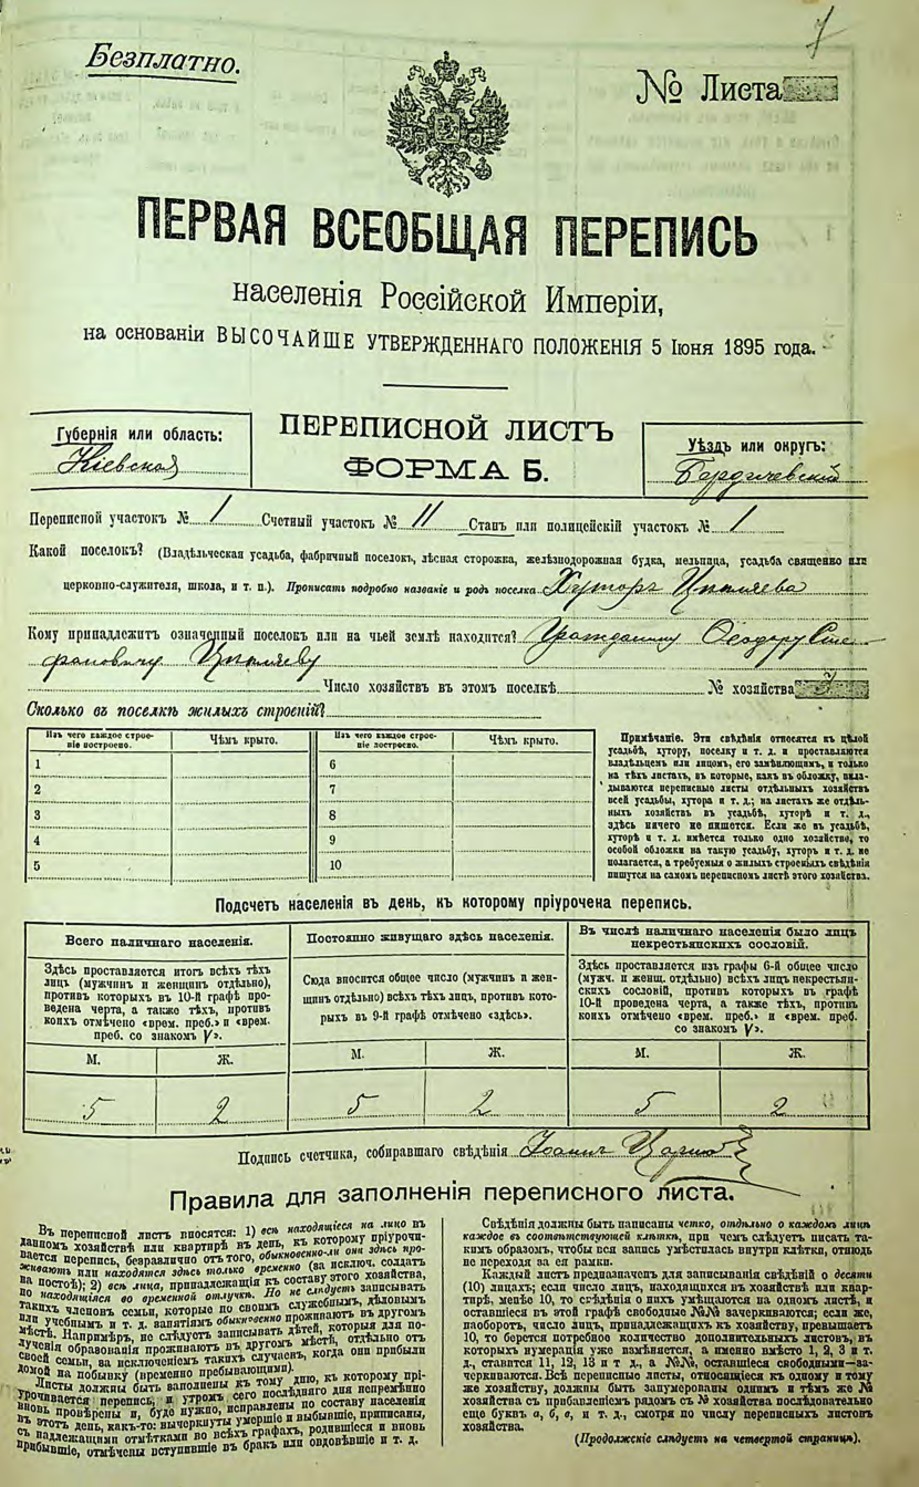 7
Безплатно.
№ Листа
ПЕРВАЯ ВСЕОБЩАЯ ПЕРЕПИСЬ
населенія Россійской Имперіи,
на основаніи ВЫСОЧАЙШЕ УТВЕРЖДЕННАГО ПОЛОЖЕНІЯ 5 Іюня 1895 года.
ПЕРЕПИСНОЙ ЛИСТЪ
ФОРМА Б.
Губернія или область:
Кіевская
Уѣздъ или округъ:
Бердичевскій
Переписной участокъ № 1 Счетный участокъ № 11 Станъ или полицейскій участокъ № 1
Какой поселокъ? (Владѣльческая усадьба, фабричный поселокъ, лѣсная сторожка, желѣзнодорожная будка, мельница, усадьба священно или
церковно-служителя, школа, и т. п.). Прописать подробно названіе и родъ поселка Хуторъ
Кому принадлежитъ означенный поселокъ или на чьей землѣ находится? Гражданину Ѳеодору Сте-
фановичу
Число хозяйствъ въ этомъ поселкѣ № хозяйства
Сколько въ поселкѣ жилыхъ строеній?
Изъ чего каждое строе-
ніе построено.
Чѣмъ крыто.
Изъ чего каждое строе-
ніе построено.
Чѣмъ крыто.
1 6
2 7
3 8
4 9
5 10
Примѣчаніе. Эти свѣдѣнія относятся къ цѣлой
усадьбѣ, хутору, поселку и т. д. и проставляются
владѣльцемъ или лицомъ, его замѣняющимъ, и только
на тѣхъ листахъ, въ которые, какъ въ обложку, вкла-
дываются переписные листы отдѣльныхъ хозяйствъ
всей усадьбы, хутора и т. д.; на листахъ же отдѣль-
ныхъ хозяйствъ въ усадьбѣ, хуторѣ и т. д.,
здѣсь ничего не пишется. Если же въ усадьбѣ,
хуторѣ и т. д. имѣется только одно хозяйство, то
особой обложки на такую усадьбу, хуторъ и т. д. не
полагается, а требуемыя о жилыхъ строеніяхъ свѣдѣнія
пишутся на самомъ переписномъ листѣ этого хозяйства.
Подсчетъ населенія въ день, къ которому пріурочена перепись.
Всего наличнаго населенія.
Здѣсь проставляется итогъ всѣхъ тѣхъ
лицъ (мужчинъ и женщинъ отдѣльно),
противъ которыхъ въ 10-й графѣ про-
ведена черта, а также тѣхъ, противъ
коихъ отмѣчено «врем. преб.» и «врем.
преб. со знакомъ V».
М. Ж.
5 2
Постоянно живущаго здѣсь населенія.
Сюда вносится общее число (мужчинъ и жен-
щинъ отдѣльно) всѣхъ тѣхъ лицъ, противъ кото-
рыхъ въ 9-й графѣ отмѣчено «здѣсь».
М. Ж.
5 2
Въ числѣ наличнаго населенія было лицъ
некрестьянскихъ сословій.
Здѣсь проставляется изъ графы 6-й общее число
(мужч. и женщ. отдѣльно) всѣхъ лицъ некрестьян-
скихъ сословій, противъ которыхъ въ графѣ
10-й проведена черта, а также тѣхъ, противъ
коихъ отмѣчено «врем. преб.» и «врем. преб.
со знакомъ V».
М. Ж.
5 2
Подпись счетчика, собиравшаго свѣдѣнія Іоаннъ
Правила для заполненія переписного листа.
Въ переписной листъ вносятся: 1) всѣ находящіеся на лицо въ
данномъ хозяйствѣ или квартирѣ въ день, къ которому пріурочи-
вается перепись, безразлично отъ того, обыкновенно-ли они здѣсь про-
живаютъ или находятся здѣсь только временно (за исключ. солдатъ
на постоѣ); 2) всѣ лица, принадлежащія къ составу этого хозяйства,
но находящіяся во временной отлучкѣ. Но не слѣдуетъ записывать
такихъ членовъ семьи, которые по своимъ служебнымъ, дѣловымъ
или учебнымъ и т. д. занятіямъ обыкновенно проживаютъ въ другомъ
мѣстѣ. Напримѣръ, не слѣдуетъ записывать дѣтей, которыя для по-
лученія образованія проживаютъ въ другомъ мѣстѣ, отдѣльно отъ
своей семьи, за исключеніемъ такихъ случаевъ, когда они прибыли
домой на побывку (временно пребывающими).
Листы должны быть заполнены къ тому дню, къ которому прі-
урочивается перепись, и утромъ сего послѣдняго дня непремѣнно
вновь провѣрены и, буде нужно, исправлены по составу населенія
въ этотъ день, какъ-то: вычеркнуты умершіе и выбывшіе, приписаны,
съ надлежащими отмѣтками во всѣхъ графахъ, родившіеся и вновь
прибывшіе, отмѣчены вступившіе въ бракъ или овдовѣвшіе и т. д.
Свѣдѣнія должны быть написаны четко, отдѣльно о каждомъ лицѣ
каждое въ соотвѣтствующей клѣткѣ, при чемъ слѣдуетъ писать та-
кимъ образомъ, чтобы вся запись умѣстилась внутри клѣтки, отнюдь
не переходя за ея рамки.
Каждый листъ предназначенъ для записыванія свѣдѣній о десяти
(10) лицахъ; если число лицъ, находящихся въ хозяйствѣ или квар-
тирѣ, менѣе 10, то свѣдѣнія о нихъ умѣщаются на одномъ листѣ, и
оставшіеся въ этой графѣ свободные №№ зачеркиваются; если же,
наоборотъ, число лицъ, принадлежащихъ къ хозяйству, превышаетъ
10, то берется потребное количество дополнительныхъ листовъ, въ
которыхъ нумерація уже измѣняется, а именно вмѣсто 1, 2, 3 и т.
д., ставится 11, 12, 13 и т. д., а №№, оставшіеся свободными—за-
черкиваются. Всѣ переписные листы, относящіеся къ одному и тому
же хозяйству, должны быть занумерованы однимъ и тѣмъ же №
хозяйства съ прибавленіемъ рядомъ съ № хозяйства послѣдовательно
еще буквъ а, б, в, и т. д., смотря по числу переписныхъ листовъ
хозяйства.
(Продолженіе слѣдуетъ на четвертой страницѣ).